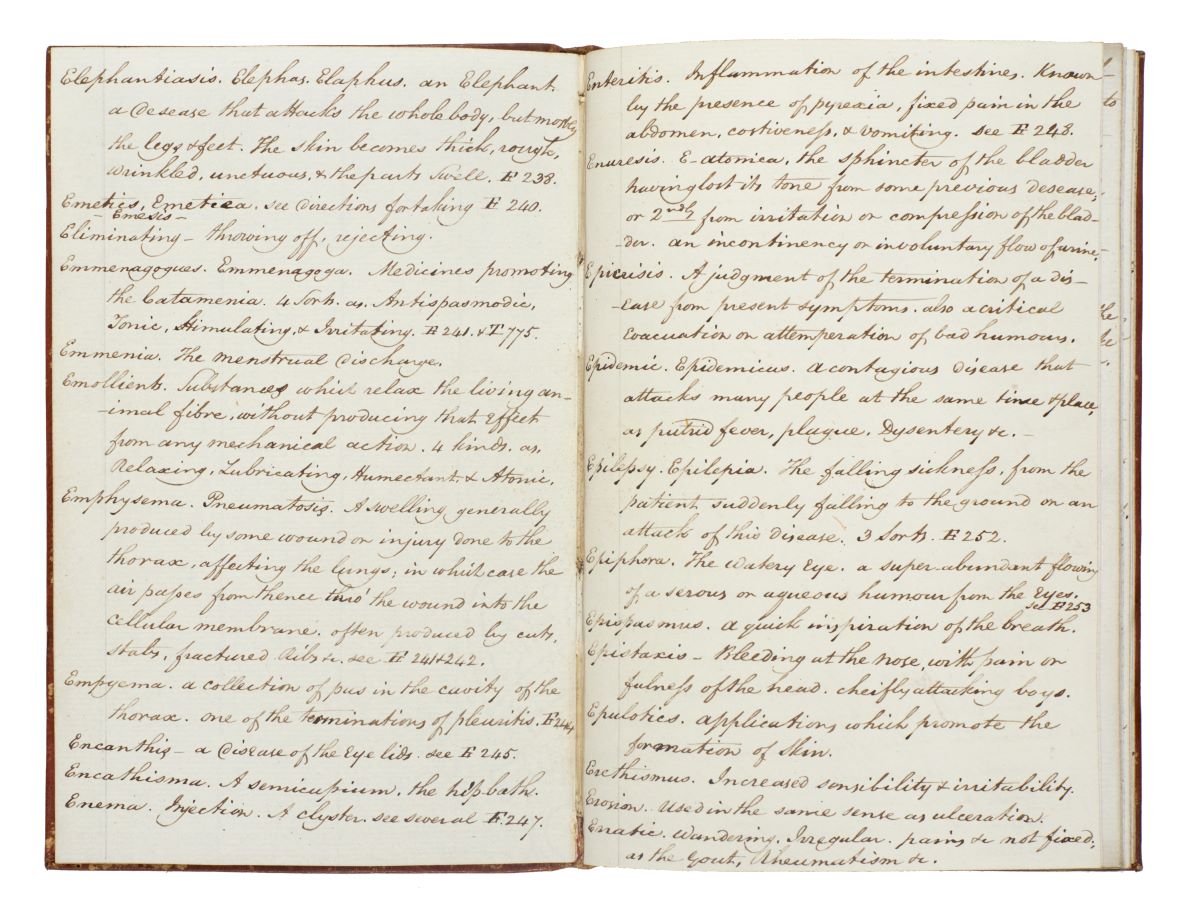 Elephantiasis. Elephas. Elaphus. an Elephant.
a Desease that attacks the whole body, but mostly
the legs & feet. The skin becomes thick, rough,
wrinkled, unctuous, & the parts Swell. F 238.
Emetics, Emetica. see directions for taking F 240.
- Emesis -
Eliminating - throwing off, rejecting.
Emmenagogues. Emmenagoga. Medicines promoting
the Catamenia. 4 Sorts. as. Antispasmodic,
Tonic, Stimulating, & Irritating. F 241. & F 775.
Emmenia. The menstrual discharge.
Emollients. Substances which relax the living an-
-imal fibre, without producing that Effect
from any mechanical action. 4 kinds. as.
Relaxing, Lubricating, Humectant, & Atonic,
Emphysema. Pneumatosis. A swelling generally
produced by some wound or injury done to the
thorax, affecting the lungs; in which case the
air passes from thence thro' the wound into the
cellular membrane. often produced by cuts,
stabs, fractured Ribs &c. see F 241 & 242.
Empyema. a collection of pus in the cavity of the
thorax. one of the terminations of pleuritis. F 244
Encanthis - a disease of the Eye lids. see F 245.
Encathisma. A semicupium. the hip bath.
Enema. Injection. A clyster. see several F 247.
Enteritis. Inflammation of the intestines. Known
by the presence of pyrexia, fixed pain in the
abdomen, costiveness, & vomiting. see F 248.
Enuresis. E-atonica, the sphincter of the bladder
having lost its tone from some previous desease;
or 2ndly from irritation or compression of the blad-
-der. an incontinency or involuntary flow of urine.
Epicrisis. A judgment of the termination of a dis-
-ease from present symptoms. also a critical
evacuation or attemperation of bad humours.
Epidemic. Epidemicus. a contagious disease that
attacks many people at the same time & place,
as putrid fever, plague. Dysentery &c. -
Epilepsy. Epilepsia. The falling sickness, from the
patient suddenly falling to the ground on an
attack of this disease. 3 Sorts. F 252.
Epiphora. The watery Eye. a super-abundant flowing
of a serous or aqueous humour from the Eyes.
see F 253
Epispasmus. a quick inspiration of the breath.
Epistaxis - Bleeding at the nose, with pain or
fulness of the head. cheifly attacking boys.
Epulotics. applications which promote the
formation of Skin.
Erethismus. Increased sensibility & irritability.
Erosion. Used in the same sense as ulceration.
Erratic. Wandering. Irregular. pains &c not fixed;
as the Gout, Rheumatism &c.
to
the